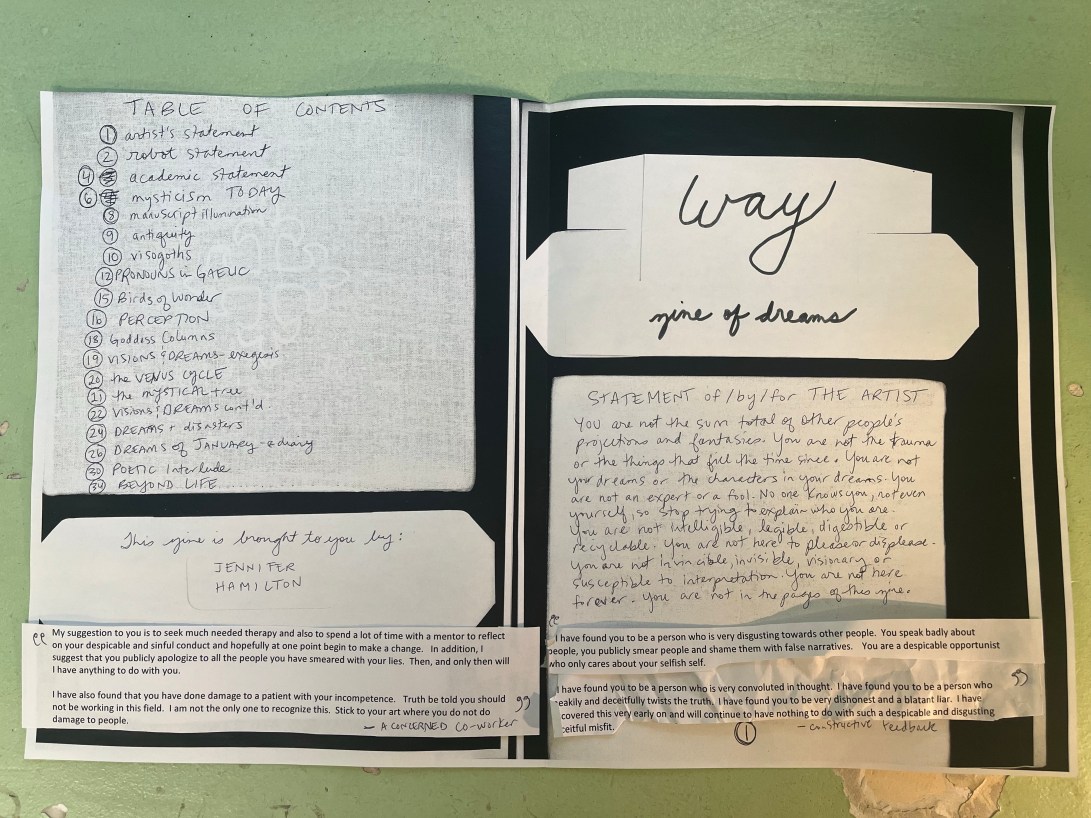 TABLE OF CONTENTS
① artist's statement
② robot statement
④ academic statement
⑥ mysticism TODAY
⑧ manuscript illumination
⑨ antiquity
⑩ visogoths
⑫ PRONOUNS in GAELIC
⑮ Birds of Wonder
⑯ PERCEPTION
⑱ Goddess Columns
⑲ VISIONS & DREAMS - exegesis
⑳ the VENUS CYCLE
㉑ the MYSTICAL tree
㉒ Visions & DREAMS cont'd.
㉔ DREAMS + disasters
㉖ DREAMS of JANUARY - a diary
㉚ POETIC Interlude
㉞ BEYOND LIFE
This zine is brought to you by:
JENNIFER
HAMILTON
“ My suggestion to you is to seek much needed therapy and also to spend a lot of time with a mentor to reflect
on your despicable and sinful conduct and hopefully at one point begin to make a change. In addition, I
suggest that you publicly apologize to all the people you have smeared with your lies. Then, and only then will
I have anything to do with you.
I have also found that you have done damage to a patient with your incompetence. Truth be told you should
not be working in this field. I am not the only one to recognize this. Stick to your art where you do not do
damage to people. ”
- A CONCERNED Co-worker
Way
zine of dreams
STATEMENT of/by/for THE ARTIST
You are not the sum total of other people's
projections and fantasies. You are not the trauma
or the things that fill the time since. You are not
your dreams or the characters in your dreams. You
are not an expert or a fool. No one knows you, not even
yourself, so stop trying to explain who you are.
You are not intelligible, legible, digestible or
recyclable. You are not here to please or displease.
You are not invincible, invisible, visionary or
susceptible to interpretation. You are not here
forever. You are not in the pages of this zine.
“ I have found you to be a person who is very disgusting towards other people. You speak badly about
people, you publicly smear people and shame them with false narratives. You are a despicable opportunist
who only cares about your selfish self.
I have found you to be a person who is very convoluted in thought. I have found you to be a person who
eakily and deceitfully twists the truth. I have found you to be very dishonest and a blatant liar. I have
covered this very early on and will continue to have nothing to do with such a despicable and disgusting
ceitful misfit. ”
- constructive feedback
①